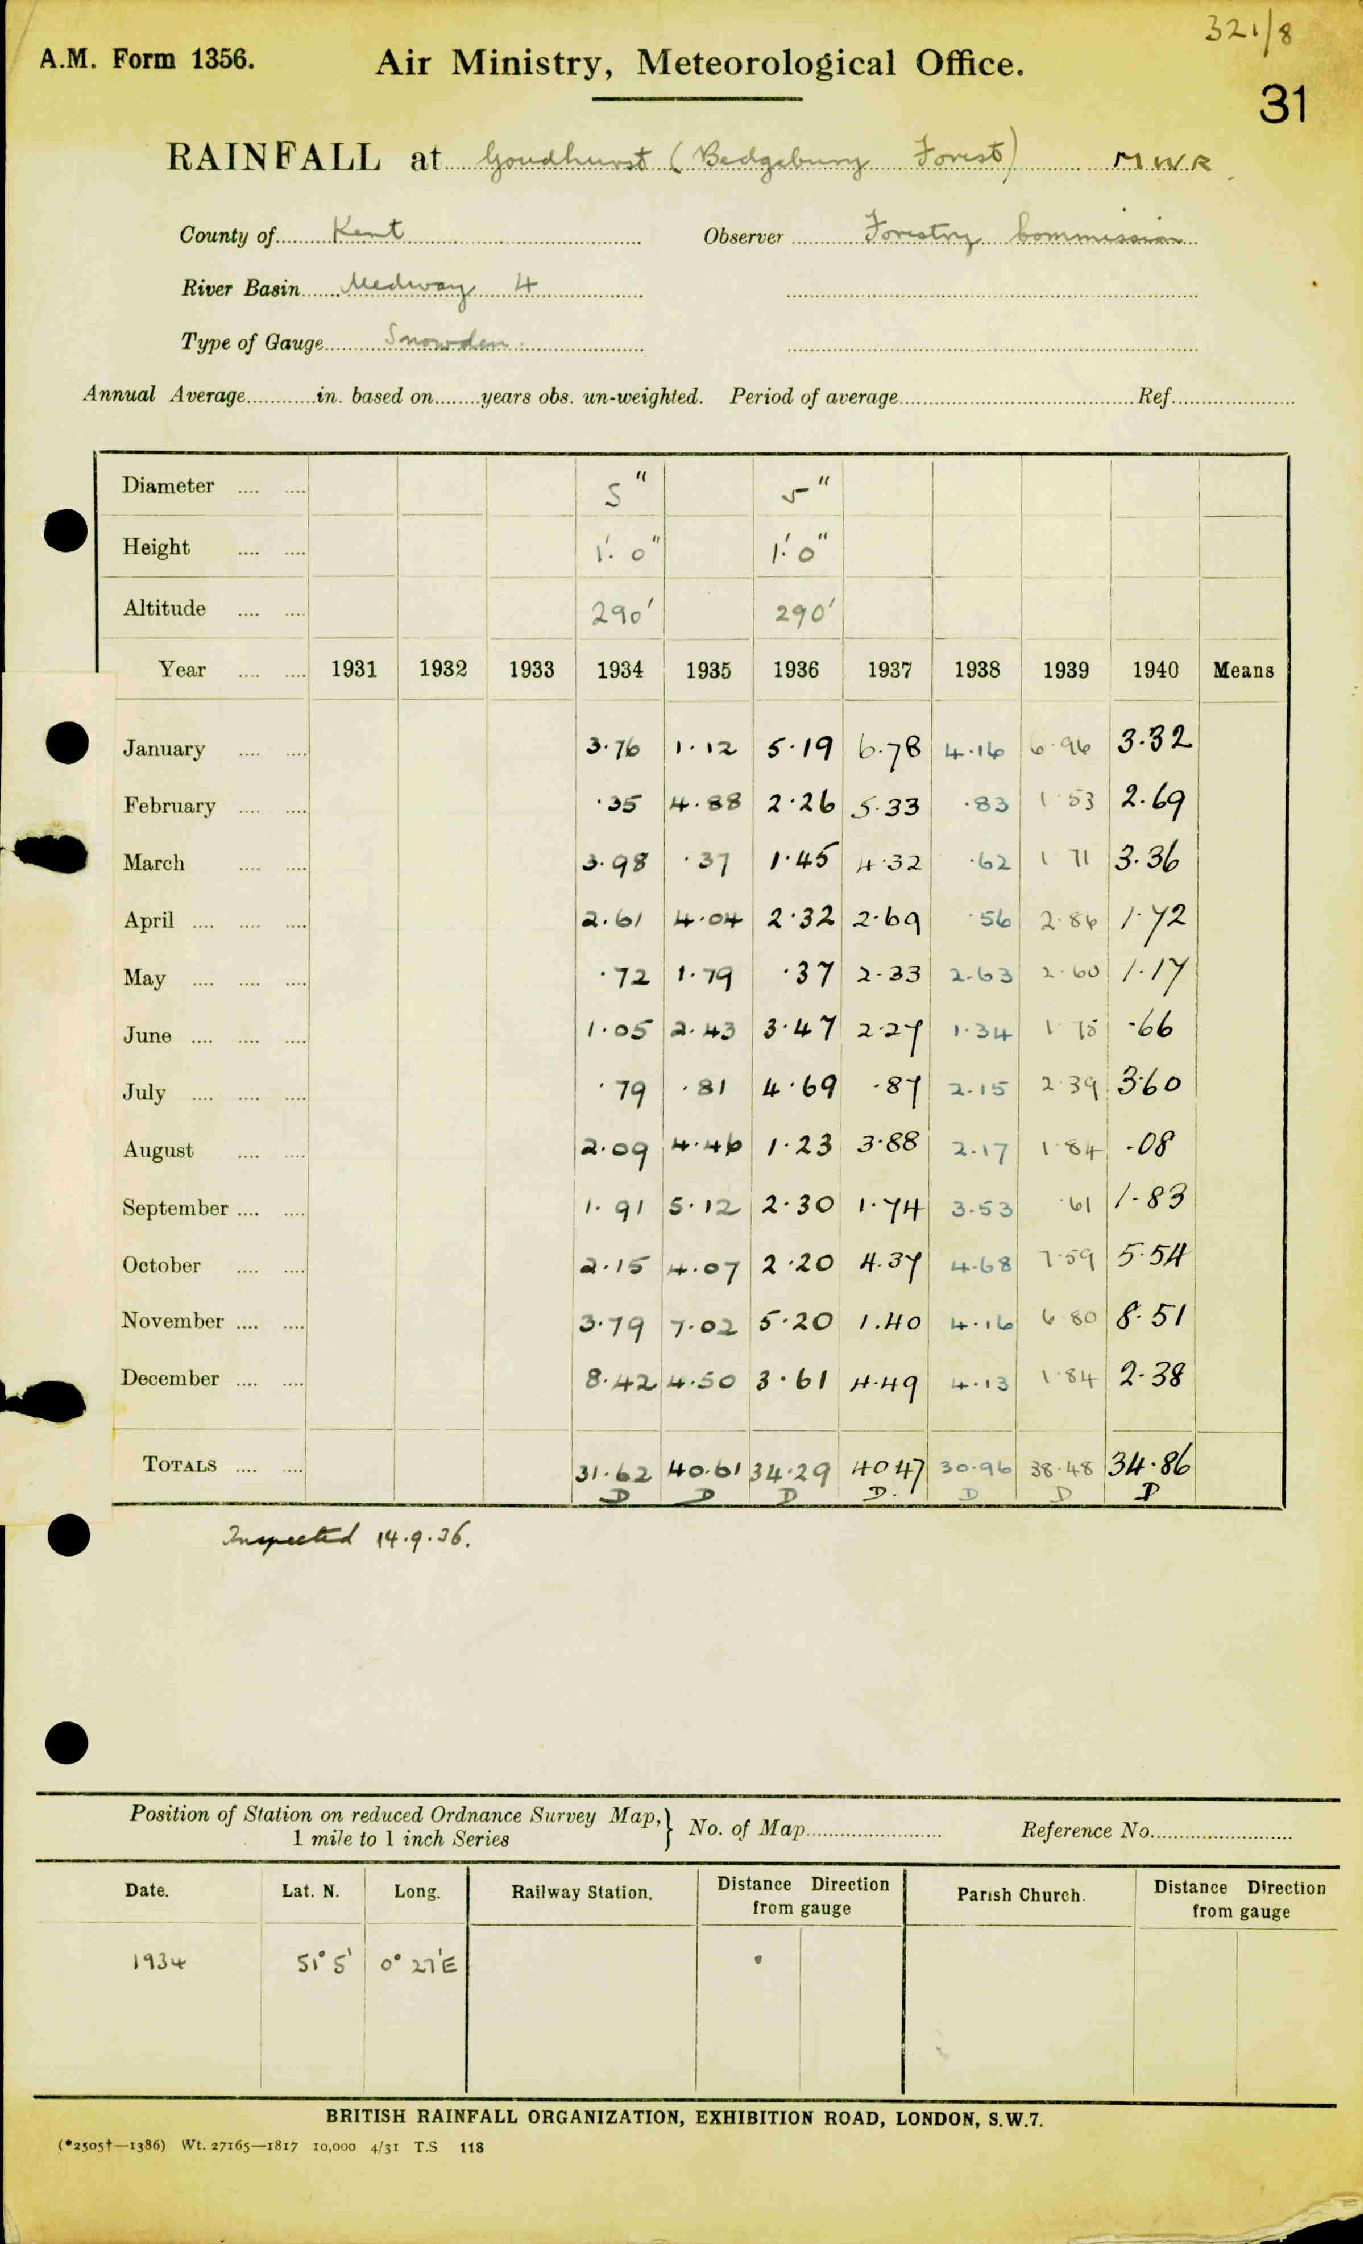 321/8
A.M. Form 1356. Air Ministry, Meteorological Office.
31
RAINFALL at Goudhurst (Bedgebury Forest) MWR
County of Kent Observer Forestry Commission
River Basin Medway 4
Type of Gauge Snowden.
Annual Average in. based on years obs. un-weighted. Period of average Ref.
Diameter 5" 5"
Height 1'.0" 1'.0"
Altitude 290' 290'
Year 1931 1932 1933 1934 1935 1936 1937 1938 1939 1940 Means
January 3.76 1.12 5.19 6.78 4.16 6.96 3.32
February .35 4.88 2.26 5.33 .83 1.53 2.69
March 3.98 .37 1.45 4.32 .62 1 71 3.36
April 2.61 4.04 2.32 2.69 .56 2.86 1.72
May .72 1.79 .37 2.33 2.63 2.60 1.17
June 1.05 2.43 3.47 2.27 1.34 1 75 .66
July .79 .81 4.69 .87 2.15 2.39 3.60
August 2.09 4.46 1.23 3.88 2.17 1.84 .08
September 1.91 5.12 2.30 1.74 3.53 .61 1.83
October 2.15 4.07 2.20 4.37 4.68 7.59 5.54
November 3.79 7.02 5.20 1.40 4.16 6 80 8.51
December 8.42 4.50 3.61 4.49 4.13 1.84 2.38
TOTALS 31.62 40.61 34.29 40.47 30.96 38.48 34.86
D D D D. D D D
Inspected 14.9.36.
Position of Station on reduced Ordnance Survey Map, } No. of Map Reference No.
1 mile to 1 inch Series
Date. Lat. N. Long. Railway Station. Distance Direction from gauge Parish Church. Distance Direction from gauge
1934 51° 5' 0° 27'E
BRITISH RAINFALL ORGANIZATION, EXHIBITION ROAD, LONDON, S.W.7.
(*2505†—1386) Wt. 27165—1817 10,000 4/31 T.S 118